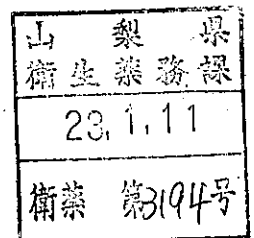 山梨県
衛生薬務課
23.1.11
衛薬 第3194号